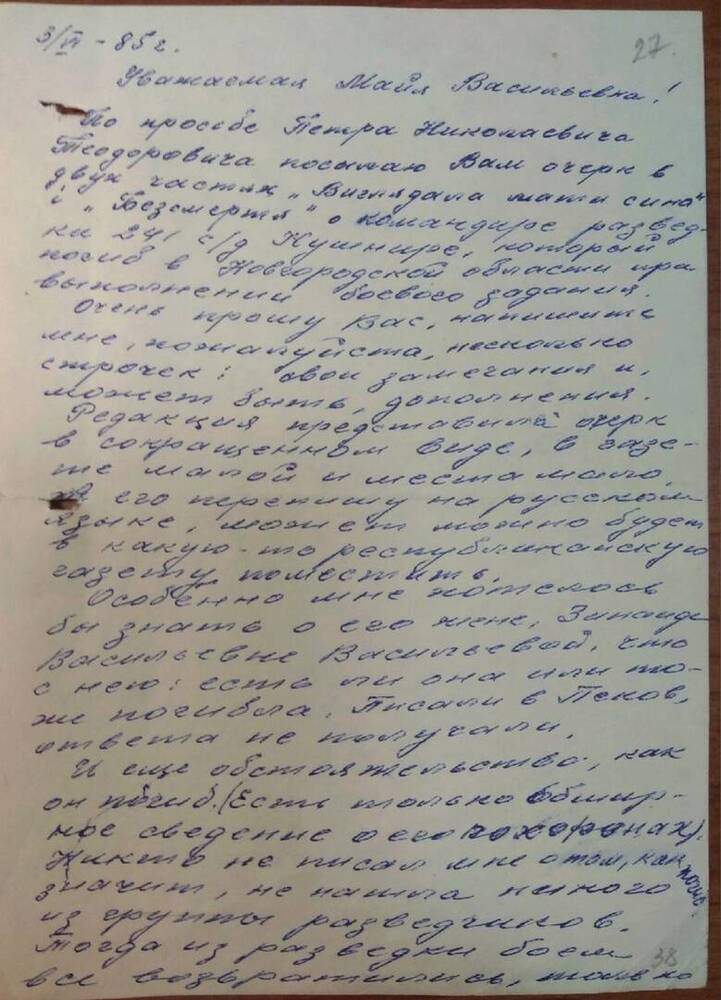 3/VI - 85 г.
27.
Уважаемая Майя Васильевна!
По просьбе Петра Николаевича
Теодоровича посылаю Вам очерк в
двух частях „Виглядала мати сина"
і „Безсмертя" о командире развед-
ки 241 с/д Кушнире, который
погиб в Новгородской области при
выполнении боевого задания.
Очень прошу Вас, напишите
мне, пожалуйста, несколько
строчек: свои замечания и,
может быть, дополнения.
Редакция представила очерк
в сокращенном виде, в газе-
те малой и места мало.
Я его перепишу на русском
языке, может можно будет
в какую-то республиканскую
газету поместить.
Особенно мне хотелось
бы знать о его жене, Зинаиде
Васильевне Васильевой, что
с нею: есть ли она или то-
же погибла. Писали в Псков,
ответа не получали.
И еще обстоятельство, как
он погиб. (Есть только
ное сведение о его похоронах).
Никто не писал мне о том, как погиб.
значит, не нашла никого
из группы разведчиков.
Тогда из разведки боем
все возвратились, только
38